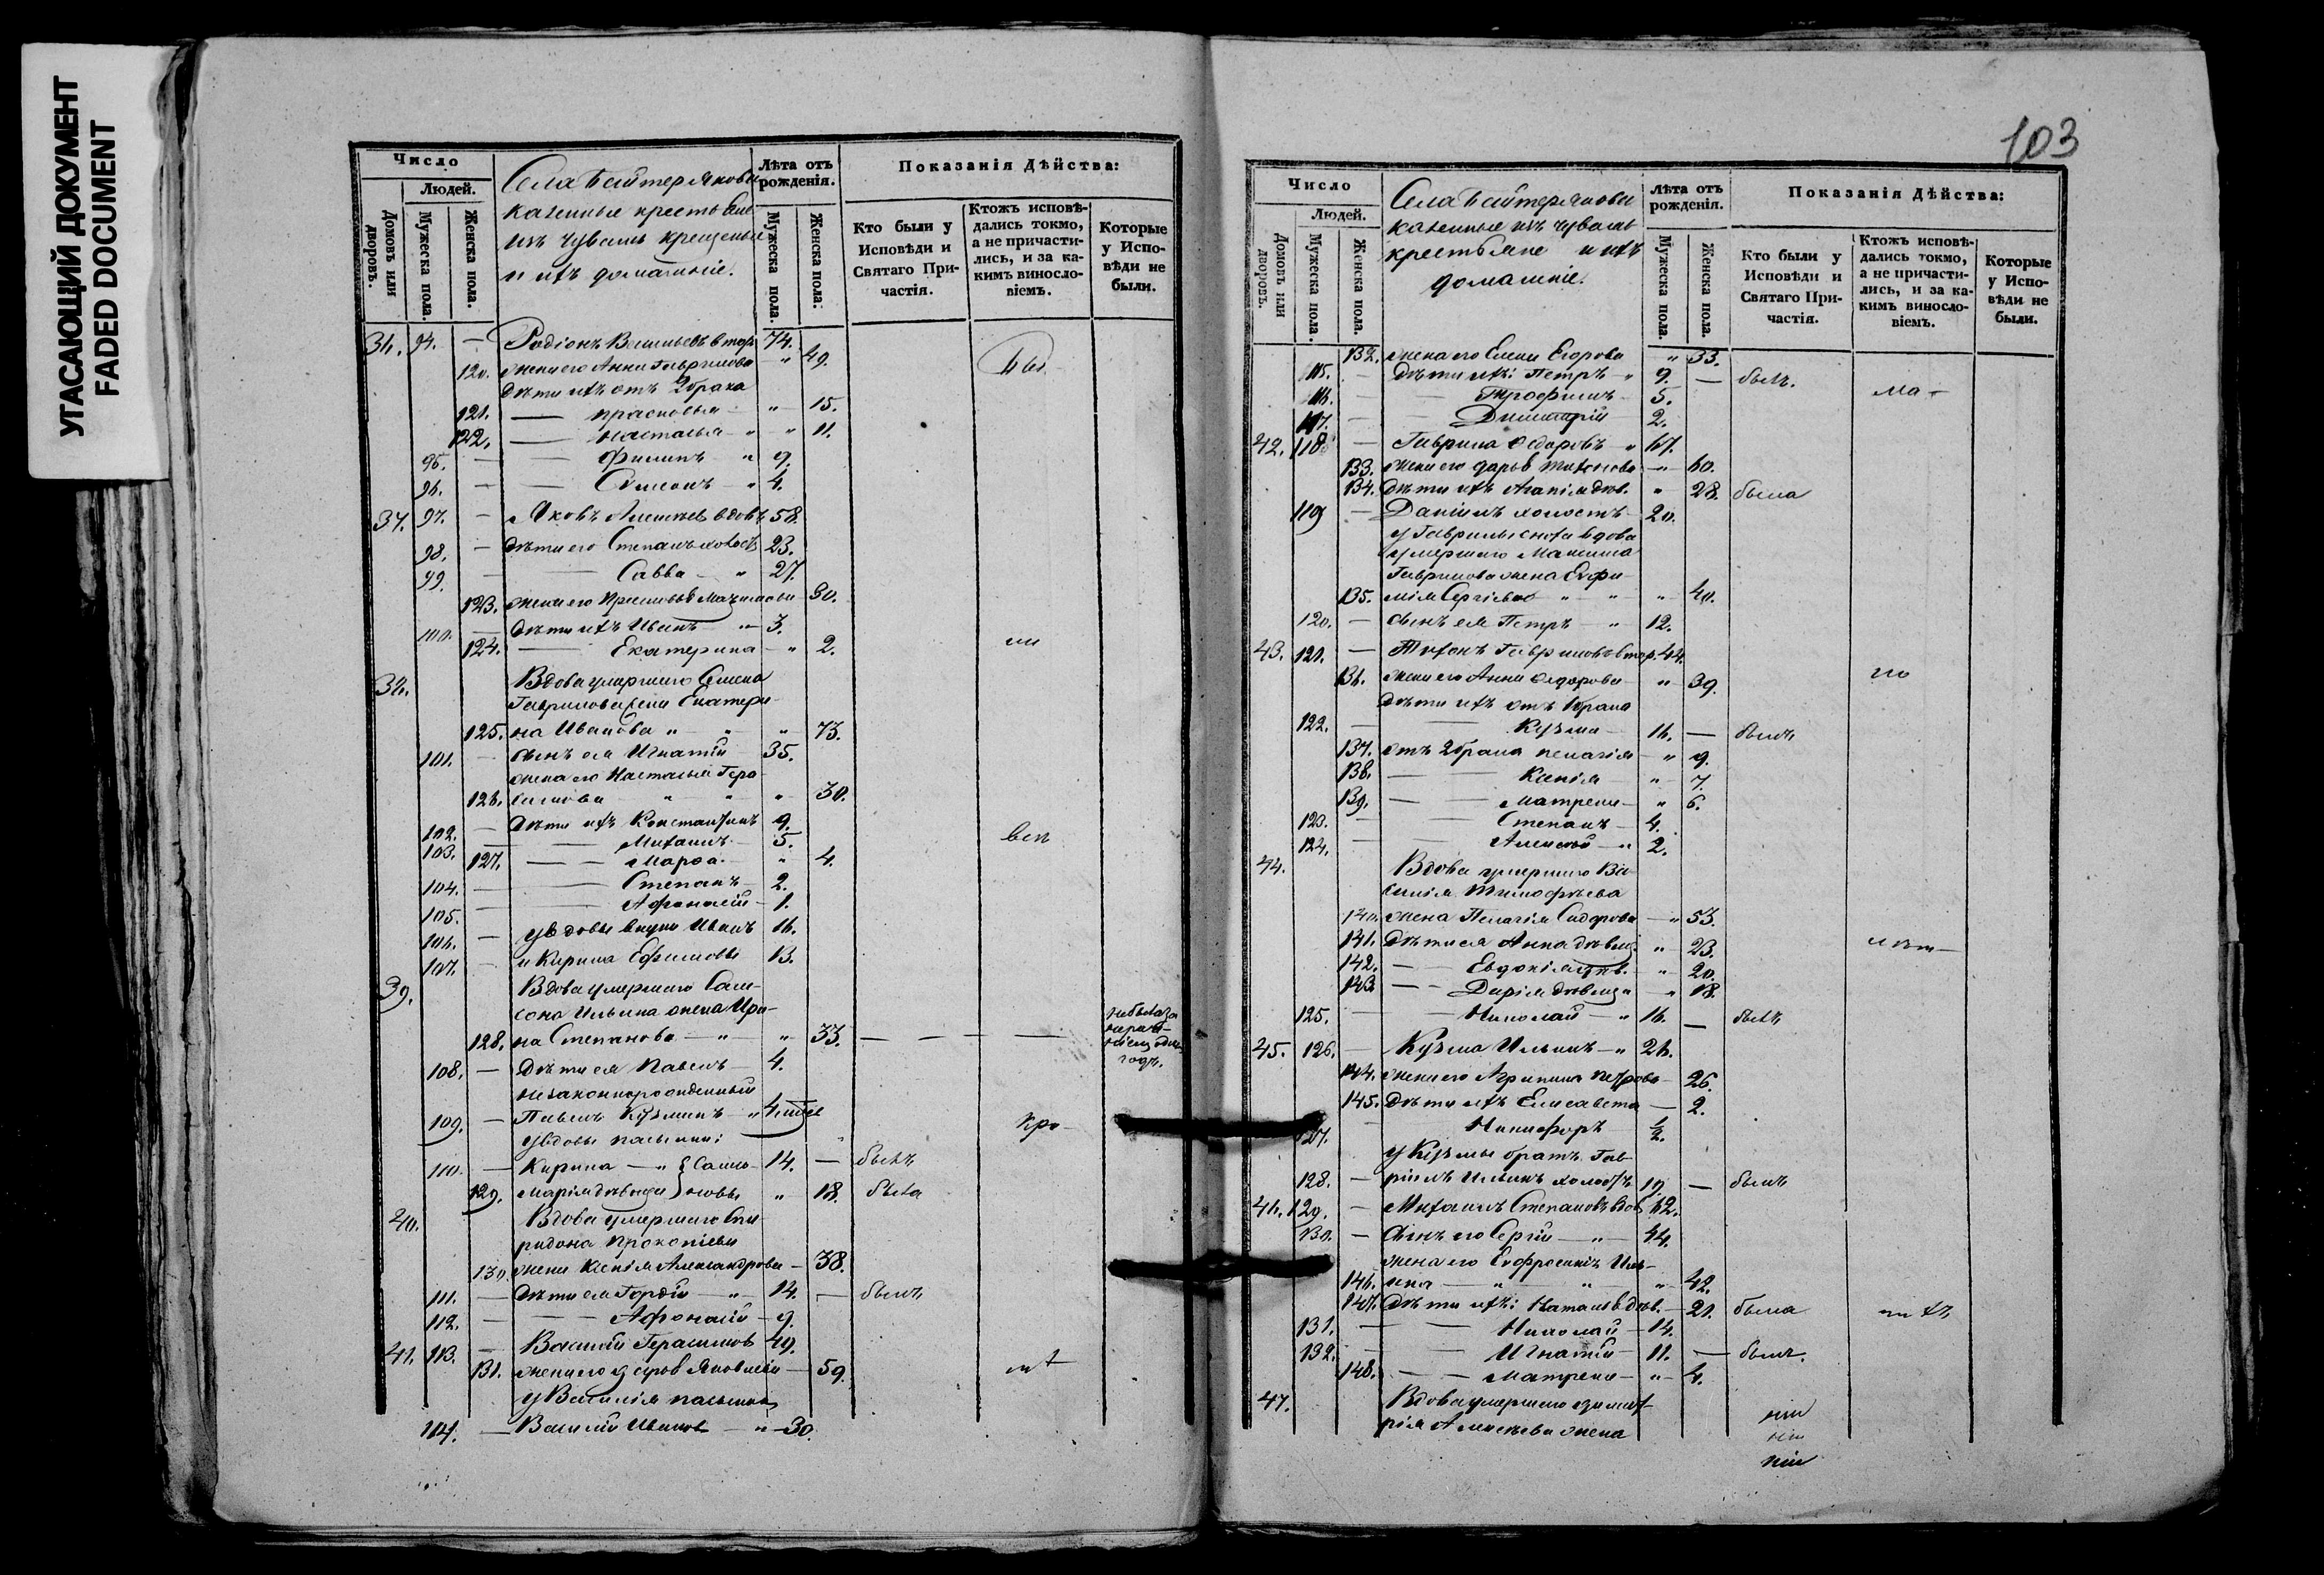 УГАСАЮЩИЙ ДОКУМЕНТ
FADED DOCUMENT
Число
Людей.
Домовъ или дворовъ.
Мужеска пола.
Женска пола.
Села Байтерякова
казенные крестьяне
изъ чувашъ крещеные
и ихъ домашніе.
Лѣта отъ рожденія.
Мужеска пола.
Женска пола.
Показанія Дѣйства:
Кто были у Исповѣди и Святаго Причастія.
Ктожъ исповѣдались токмо, а не причастились, и за какимъ винословіемъ.
Которые у Исповѣди не были.
36. 94. — Родіонъ Васильевъ втор. 74.
120. жена его Анна Гаврилова " 49.
дѣти ихъ отъ 2 брака
121. — Прасковья " 15.
122. — Настасья " " 11.
95. — — Филипъ " 9.
96. — — Симеонъ " 4.
37. 97. — Яковъ Алексѣевъ вдовъ 58.
98. — дѣти его Степанъ холостъ 23.
99. — — Савва " 27.
123. жена его 30.
100. — дѣти ихъ Иванъ " 3.
124. — Екатерина — " 2.
38. Вдова умершаго Семена
Гаврилова жена Екатери-
125. на Иванова " " " 73.
101. — сынъ ея Игнатій 35.
жена его Настасья Гера-
126. симова " " " 30.
102. — дѣти ихъ Константинъ 9.
103. — — Михаилъ 5.
127. — — Марѳа " 4.
104. — — Степанъ 2.
105. — — Афанасій 1.
106. — у вдовы внуки Иванъ 16.
107. — и Кирила Ефимовы 13.
39. Вдова умершаго Сам-
сона Ильина жена Ири-
128. на Степанова — " " 33. — — —
108. — дѣти ея Павелъ 4.
незаконнорожденный
109. — Павелъ Кузминъ " 4
у вдовы пасынки:
110. — Кирила — " Самсо- 14. — былъ
129. Марія дѣвица новы " 18. была
40. Вдова умершаго Спи-
ридона Прокопіева
130. жена Ксенія Александрова — 38.
111. — дѣти ея Гордѣй — " 14. — былъ
112. — — Афонасій — 9.
41. 113. — Василій Герасимовъ 49.
131. жена его Яковлева — 59.
у Василія пасынокъ
114. — Василій Ивановъ — " 30.
103
Число
Людей.
Домовъ или дворовъ.
Мужеска пола.
Женска пола.
Села Байтерякова
казенные изъ чувашъ
крестьяне и ихъ
домашніе.
Лѣта отъ рожденія.
Мужеска пола.
Женска пола.
Показанія Дѣйства:
Кто были у Исповѣди и Святаго Причастія.
Ктожъ исповѣдались токмо, а не причастились, и за какимъ винословіемъ.
Которые у Исповѣди не были.
132. жена его Елена Егорова " 33.
115. — дѣти ихъ: Петръ " 9. — былъ.
116. — — Трофимъ 5.
117. — — Димитрій 2.
42. 118. — Гаврила Ѳедоровъ " 67.
133. жена его Дарья Тихонова " 60.
134. дѣти ихъ Агапія дѣв. " 28. была
119 — Даніилъ холостъ 20.
у Гаврилы сноха вдова
умершаго Максима
Гаврилова жена Евфи-
135. мія Сергіева " " " 40.
120. — сынъ ея Петръ " 12.
43. 121. — Тихонъ Гавриловъ втор. 44.
136. жена его Анна Ѳедорова " 39.
дѣти ихъ отъ 1 брака
122. — — Кузма 16. — былъ
137. отъ 2 брака Пелагія " 9.
138. — — Ксенія " 7.
139. — — Матрена " 6.
123. — — Степанъ 4.
124. — — Алексѣй " 2.
44. Вдова умершаго Ва-
силія Тимофѣева
140. жена Пелагія Сидорова — " 53.
141. дѣти ея Анна дѣвица " 23.
142. — — Евдокія " 20.
143 — — Дарія дѣвица " 18.
125. — Николай — " 16. — былъ
45. 126. — Кузма Ильинъ — " 26.
144. жена его Агрипина Петрова — 26.
145. дѣти ихъ Елисавета — 2.
127. — Никифоръ ½.
у Кузмы братъ Гав-
128. —ріилъ Ильинъ холостъ 19. — былъ
46. 129. — Михаилъ Степановъ вдов 62.
130. — Сынъ его Сергій — " 44.
жена его Евфросинія Иль-
146. ина — " " " 42.
147. дѣти ихъ: Наталья дѣв. — 21. была
131. — — Николай — 14.
132. — — Игнатій — 11. — былъ.
148. — — Матрена — " 4.
47. Вдова умершаго Димит-
рія Алексѣева жена